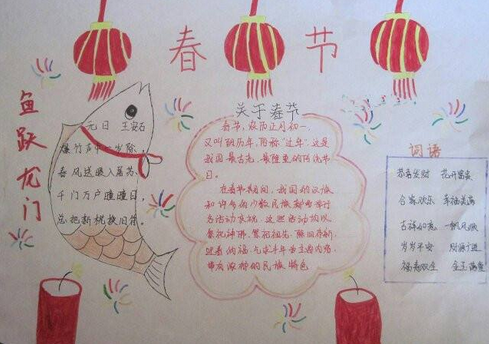 春节
鱼跃龙门
元日 王安石
爆竹声中一岁除,
春风送暖入屠苏。
千门万户曈曈日,
总把新桃换旧符。
关于春节
春节,农历正月初一
又叫阴历年,俗称"过年"这是
我国最古老,最隆重的传统节
日。
在春节期间,我国的汉族
和许多少数民族都会举行
各活动
祭祀神佛,祭祀祖先,除旧布新,
迎春纳福,气求丰年为主要内容,
带有浓郁的民族特色
词语
恭喜发财 花开富贵
合家欢乐 幸福美满
吉祥如意 一帆风顺
岁岁平安 财源广进
福寿双全 金玉满堂